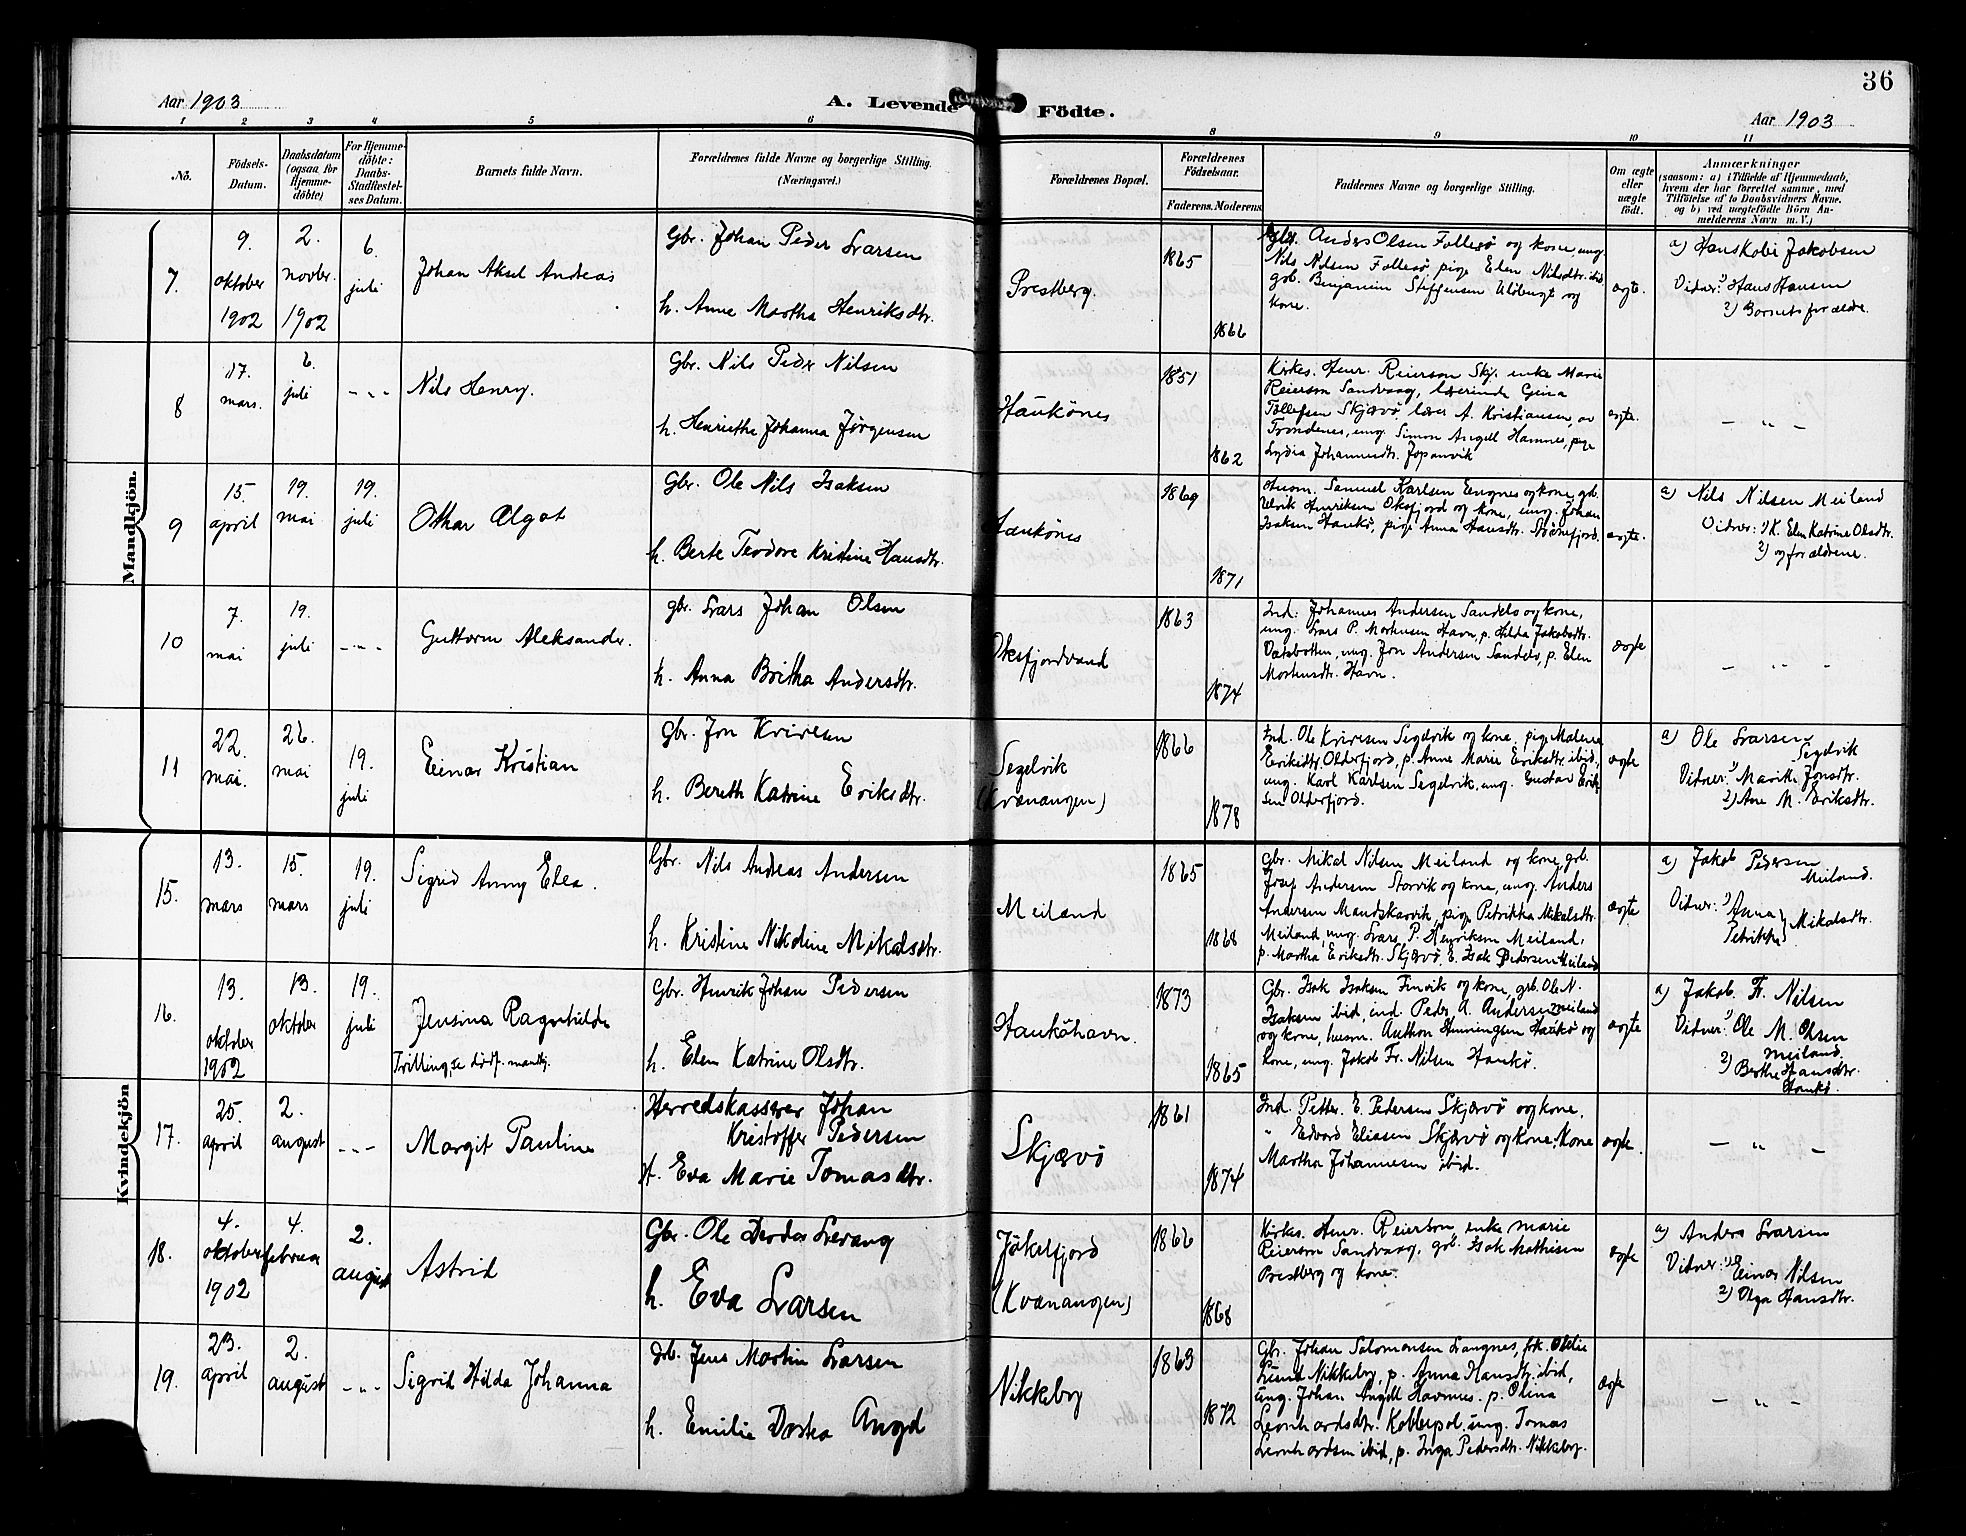 36
Aar 1903
A. Levende Födte.
Aar 1903
1 2 3 4 5 6 8 9 10 11
No.
Födsels-
Datum.
Daabsdatum
(ogsaa for
Hjemme-
döbte)
For Hjemme-
döbte:
Daabs-
Stadfæstel-
ses Datum.
Barnets fulde Navn.
Forældrenes fulde Navne og borgerlige Stilling.
(Næringsvei.)
Forældrenes Bopæl.
Forældrenes
Födselsaar.
Faderens. Moderens.
Faddernes Navne og borgerlige Stilling.
Om ægte
eller
uægte
födt.
Anmærkninger
(saasom: a) i Tilfælde af Hjemmedaab,
hvem der har forrettet samme, med
Tilföielse af to Daabsvidners Navne.
og b) ved uægtefödte Börn An-
melderens Navn m. V.)
Mandkjön.
7.
9.
oktober
1902
2.
novbr.
1902
6.
juli
Johan Aksel Andreas
Gbr. Johan Peder Larsen
h. Anne Martha Henriksdtr.
Prestberg.
1865
1866
Anders Olsen Follesö og kone, ung.
Nils Nilsen Follesö, pige Elen Nilsdtr. ibid,
grb. Benjamin Steffensen og
kone.
ægte.
a) Hans Kobi Jakobsen
Vidner: 1) Hans Hansen
2) Barnets forældre.
8
17.
mars.
6.
juli
- " -
Nils Henry.
Gbr. Nils Peder Nilsen
h. Henriethe Johanna Jörgensen
Haukönes
1851
1862
Kirkes. Henr. Reierson Skj. enke Marie
Reierson Sandvaag, lærerinde Gina
Tollefsen Skjærvö, lærer A. Kristiansen, av
Trondenes, ung. Simon Angell Hamnes, pige
Lydia Johannesdtr.
ægte.
- " -
9
15.
april
19.
mai
19.
juli
Othar Algot
Gbr. Ole Nils Isaksen
h. Berte Teodore Kristine Hansdtr.
Haukönes
1869
1871
Samuel Karlsen og kone, grb.
Ulrik Henriksen Oksfjord og kone, ung. Johan
Isaksen Haukö, pige Anna Hansdtr.
ægte.
a) Nils Nilsen Meiland
Vidner: 1) K. Elen Katrine Olsdtr.
2) og forældrene.
10
7.
mai
19.
juli
- " -
Guttorm Aleksander.
gbr. Lars Johan Olsen
h. Anna Britha Andersdtr.
Oksfjordvand
1863
1874
Ind. Johannes Andersen Sandelo og kone,
ung. Lars P. Mortensen Havn, p. Hilda Jakobsdtr.
ung. Jon Andersen Sandelo, p. Elen
Mortensdtr. Havn.
ægte
- " -
11
22.
mai.
26.
mai
19.
juli
Einar Kristian
Gbr. Jon Kvivesen
h. Bereth Katrine Eriksdtr.
Segelvik
(Kvænangen)
1866
1878
Ind. Ole Kvivesen Segelvik og kone, pige Malena
Eriksdtr. Olderfjord, p. Anne Marie Eriksdtr. ibid,
ung. Karl Karlsen Segelvik, ung. Gustav Erik-
sen Olderfjord.
ægte
a) Ole Larsen
Segelvik
Vidner: 1) Marit Jonsdtr.
2) Ane M. Eriksdtr.
Kvindekjön
15.
13.
mars
15.
mars
19.
juli
Sigrid Anny Elea.
Gbr. Nils Andreas Andersen
h. Kristine Nikoline Mikalsdtr.
Meiland
1865
1868
Gbr. Mikal Nilsen Meiland og kone, grb.
Josef Andersen Storvik og kone, ung. Anders
Andersen Mandskarvik, pige Petrikka Mikalsdtr.
Meiland, ung. Lars P. Henriksen Meiland,
p. Martha Eriksdtr. Skjærvö, E. Isak Pedersen Meiland
ægte
a) Jakob Pedersen
Meiland.
Vidner: 1) Anna
Petrikke } Mikalsdtr.
16.
13.
oktober
1902
13.
oktober
19.
juli
Jensina Ragnhilda
Tvilling, se dødf. mandkj.
Gbr. Henrik Johan Pedersen
h. Elen Katrine Olsdtr.
Hauköhavn.
1873
1865
Gbr. Isak Isaksen Finvik og kone, grb. Ole N.
Isaksen ibid, ind. Peder A. Andersen Meiland
og kone, husm. Anthon Henningsen Haukö og
kone, ung. Jakob Fr. Nilsen Haukö.
ægte
a) Jakob Fr. Nilsen
Vidner: 1) Ole M. Olsen
Meiland.
2) Berthe Hansdtr.
Haukö.
17.
25.
april
2.
august
- " -
Margit Pauline
Herredskasserer Johan
Kristoffer Pedersen
H. Eva Marie Tomasdtr.
Skjærvö
1861
1874
Ind. Petter E. Pedersen Skjærvö og kone,
" Edvard Eliassen Skjærvö og kone, Kone
Martha Johannesen ibid.
ægte.
- " -
18.
4.
oktober
1902
4.
februar
2.
august
Astrid
Gbr. Ole Levang
h. Eva Larsen
Jökelfjord
(Kvænangen)
1866
1868
Kirkes. Henr. Reierson, enke Marie
Reierson Sandvaag, grb. Isak Mathisen
Prestberg og kone.
ægte
a) Anders Larsen
Vidner: 1) Einar Nilsen
2) Olga Hansdtr.
19.
23.
april
2.
august
- " -
Sigrid Hilda Johanna
Jens Martin Larsen
h. Emilie Dortea Angel
Nikkeby
1869
1872
Gbr. Johan Salomonsen Langnes, frk. Otelie
Lund Nikkeby, p. Anna Hansdtr. ibid,
ung. Johan Angell Havnnes, p. Olina
Leonhardsdtr. Kobbepol, ung. Tomas
Leonhardsen ibid, p. Inga Pedersdtr. Nikkeby.
ægte
- " -